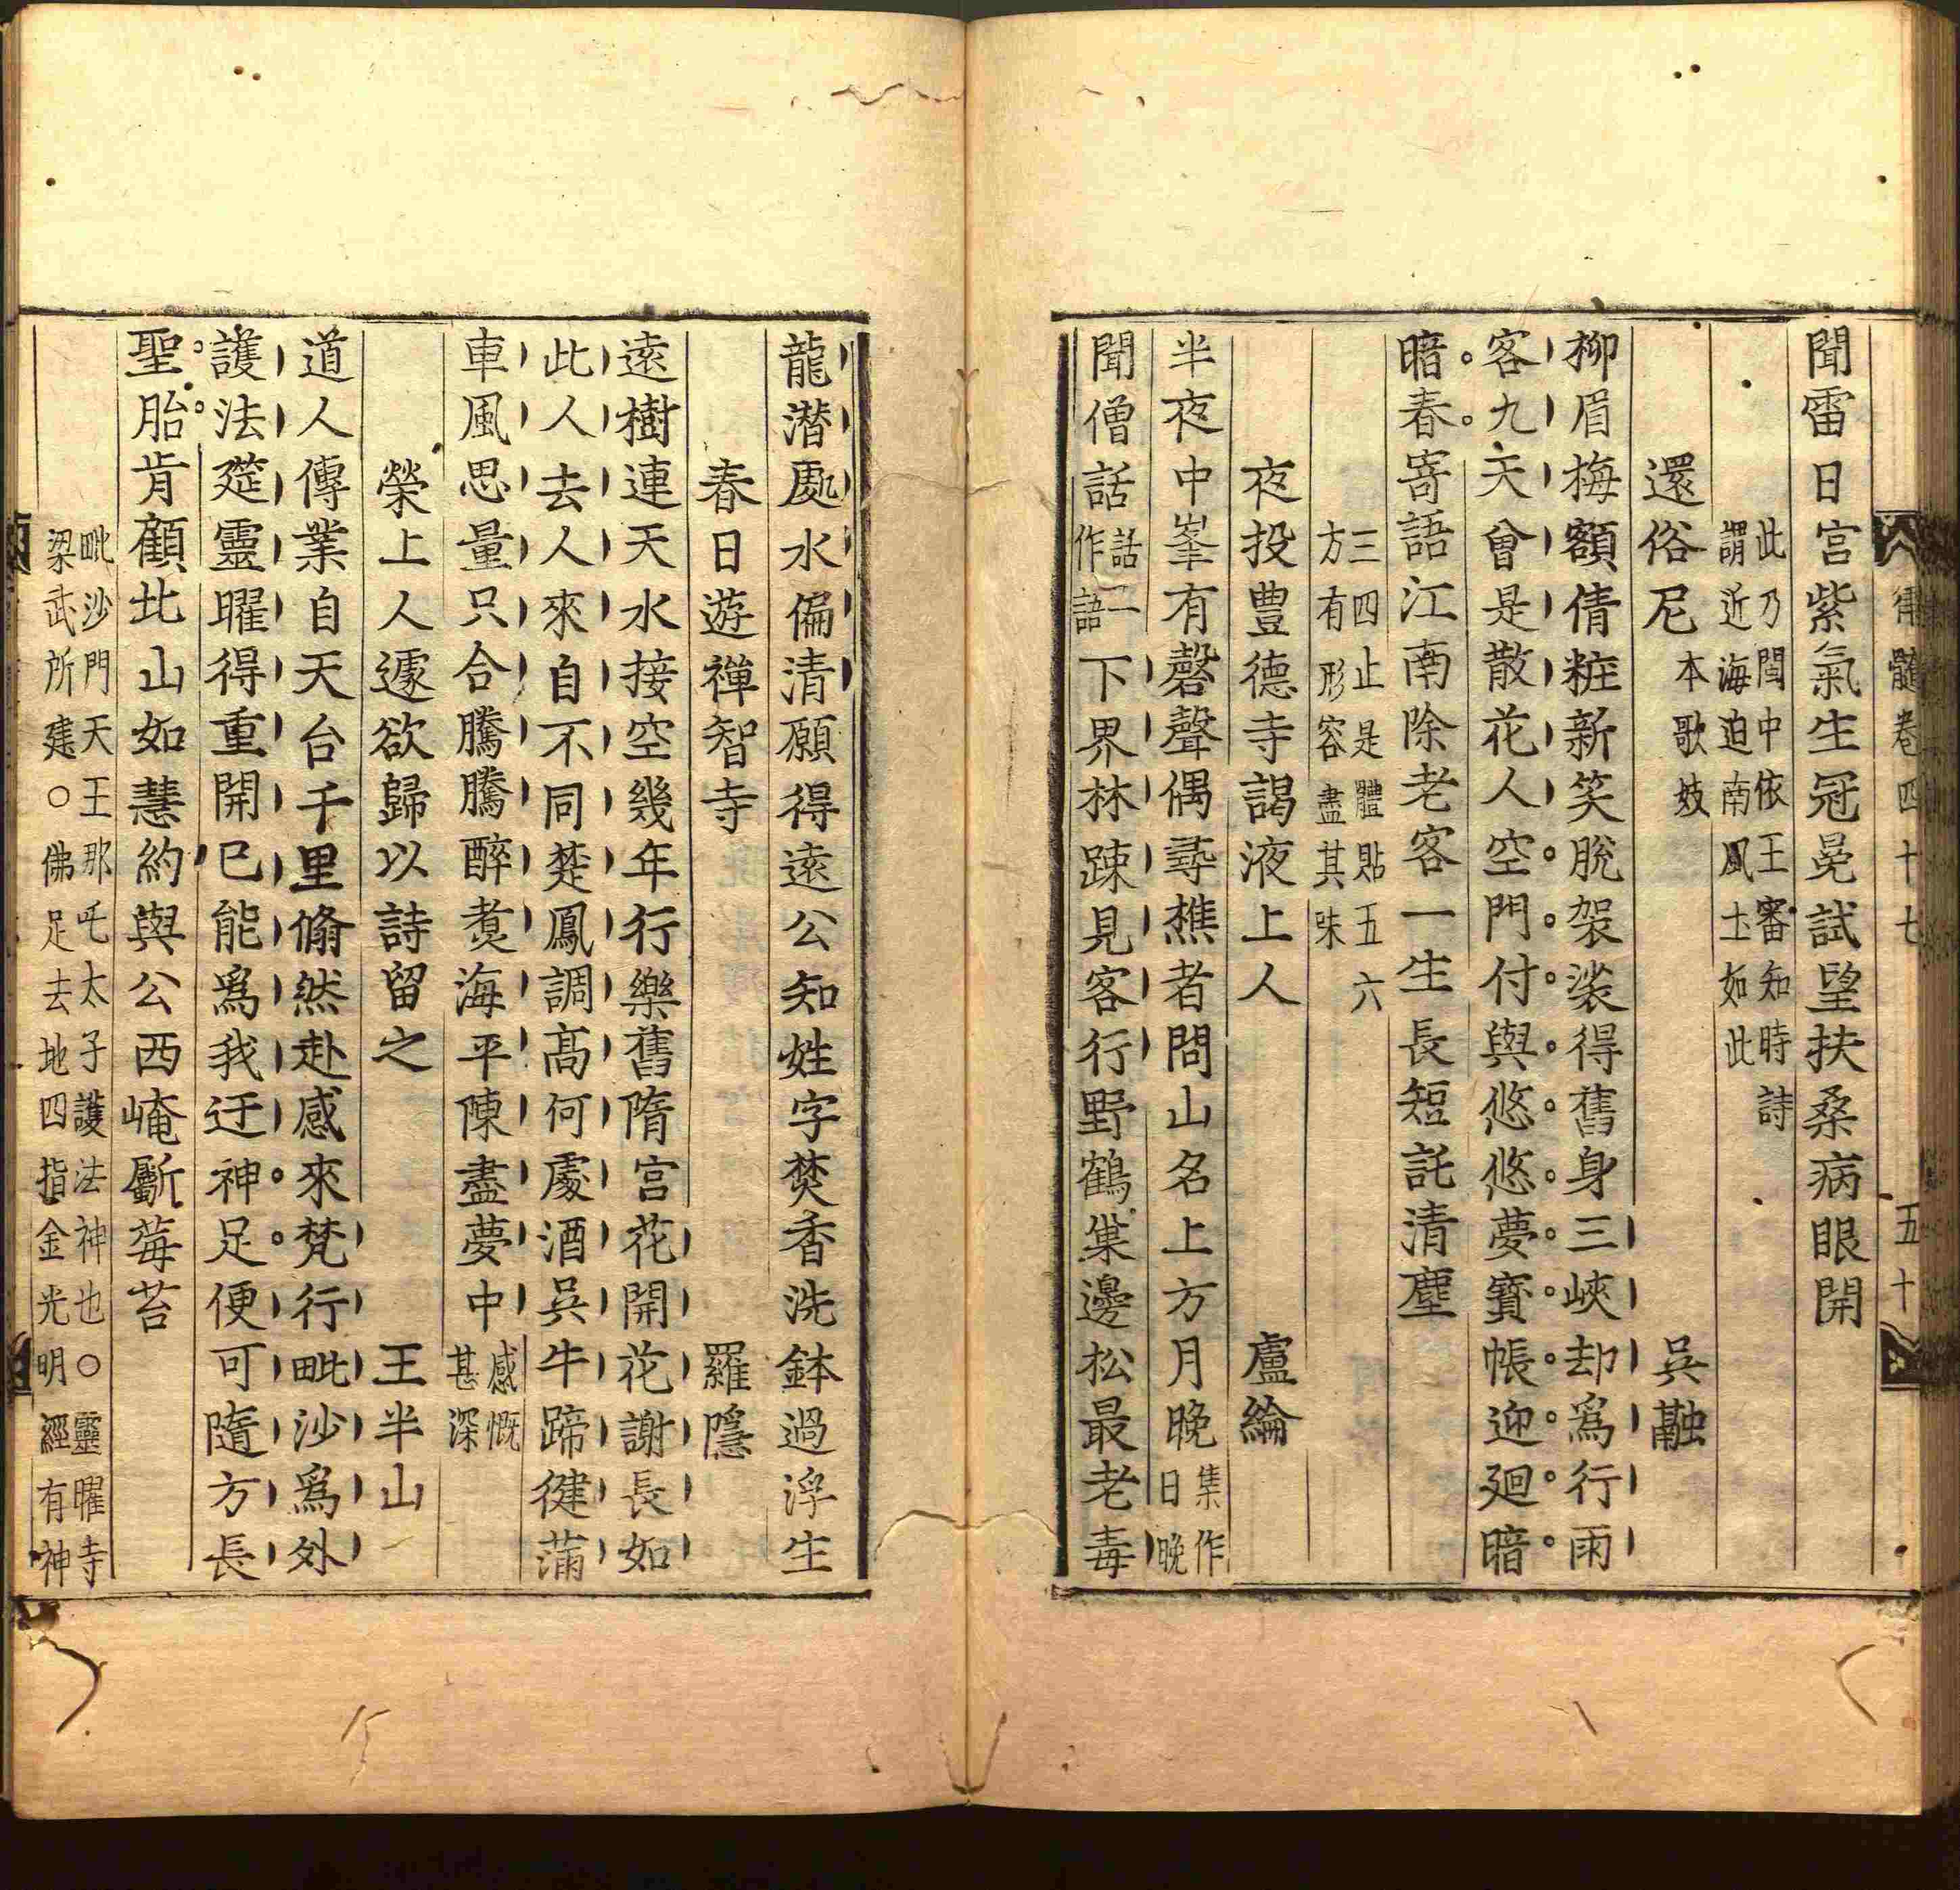 聞雷日宮紫氣生冠冕試望扶桑病眼開
此乃閩中依王審知時詩
謂近海迫南風土如此
還俗尼本歌妓 吳融
柳眉梅額倩粧新笑脫袈裟得舊身三峽却爲行雨
客九天曾是散花人空門付與悠悠夢寶帳迎廻暗
暗春寄語江南除老客一生長短託清塵
三四止是體貼五六
方有形容盡其味
夜投豊德寺謁液上人 盧綸
半夜中峯有磬聲偶尋樵者問山名上方月晚
集作
日晚
聞僧話
話一
作語
下界林踈見客行野鶴巢邊松最老毒
龍潜處水偏清願得遠公知姓字焚香洗鉢過浮生
春日遊禪智寺 羅隱
遠樹連天水接空幾年行樂舊隋宮花開花謝長如
此人去人來自不同楚鳳調高何處酒吳牛蹄健滿
車風思量只合騰騰醉煑海平陳盡夢中
感慨
甚深
榮上人遽欲歸以詩留之 王半山
道人傳業自天台千里翛然赴感來梵行毗沙爲外
護法筵靈曜得重開已能爲我迂神足便可隨方長
聖胎肯顧北山如慧約與公西崦斸莓苔
毗沙門天王那吒太子護法神也○靈曜寺
梁武所建○佛足去地四指金光明經有神
律髓卷四十七 五十